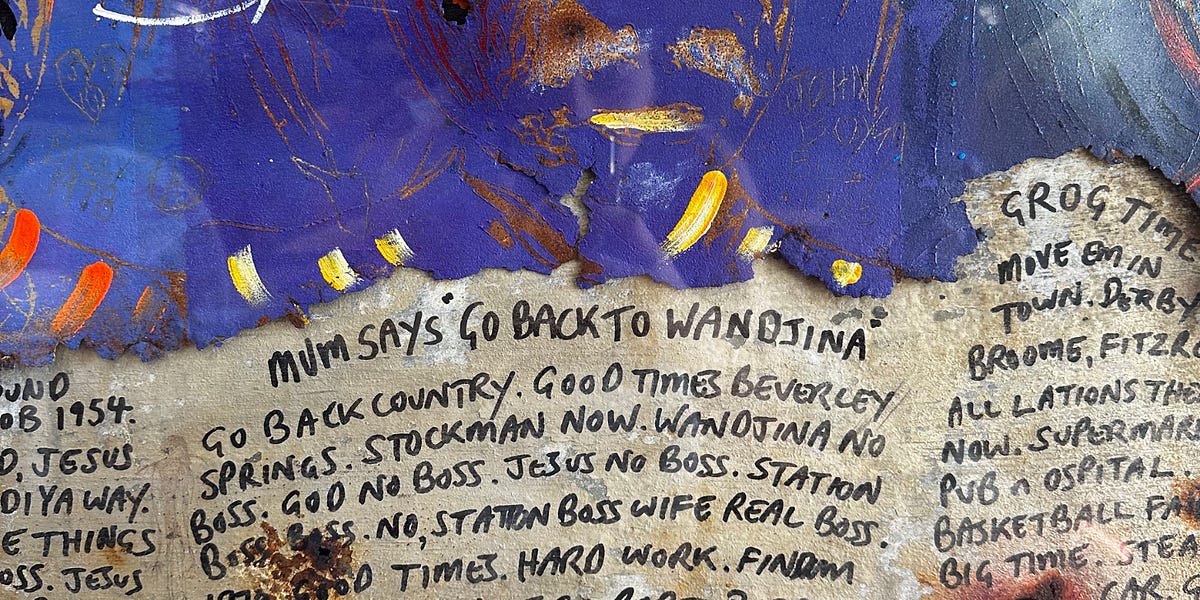 JOHN
1978
OUND
OB 1954.
D, JESUS
DIYA WAY.
E THINGS
OSS. JESUS
MUM SAYS "GO BACK TO WANDJINA"
GO BACK COUNTRY. GOOD TIMES BEVERLEY
SPRINGS. STOCKMAN NOW. WANDJINA NO
BOSS. GOD NO BOSS. JESUS NO BOSS. STATION
BOSS BOSS. NO, STATION BOSS WIFE REAL BOSS.
GOOD TIMES. HARD WORK. FINDUM
GROG TIME
MOVE EM IN
TOWN. DERBY
BROOME, FITZRO
ALL LATIONS THE
NOW. SUPERMAR
PUB N OSPITAL.
BASKETBALL FA
BIG TIME. STEA
CAR.